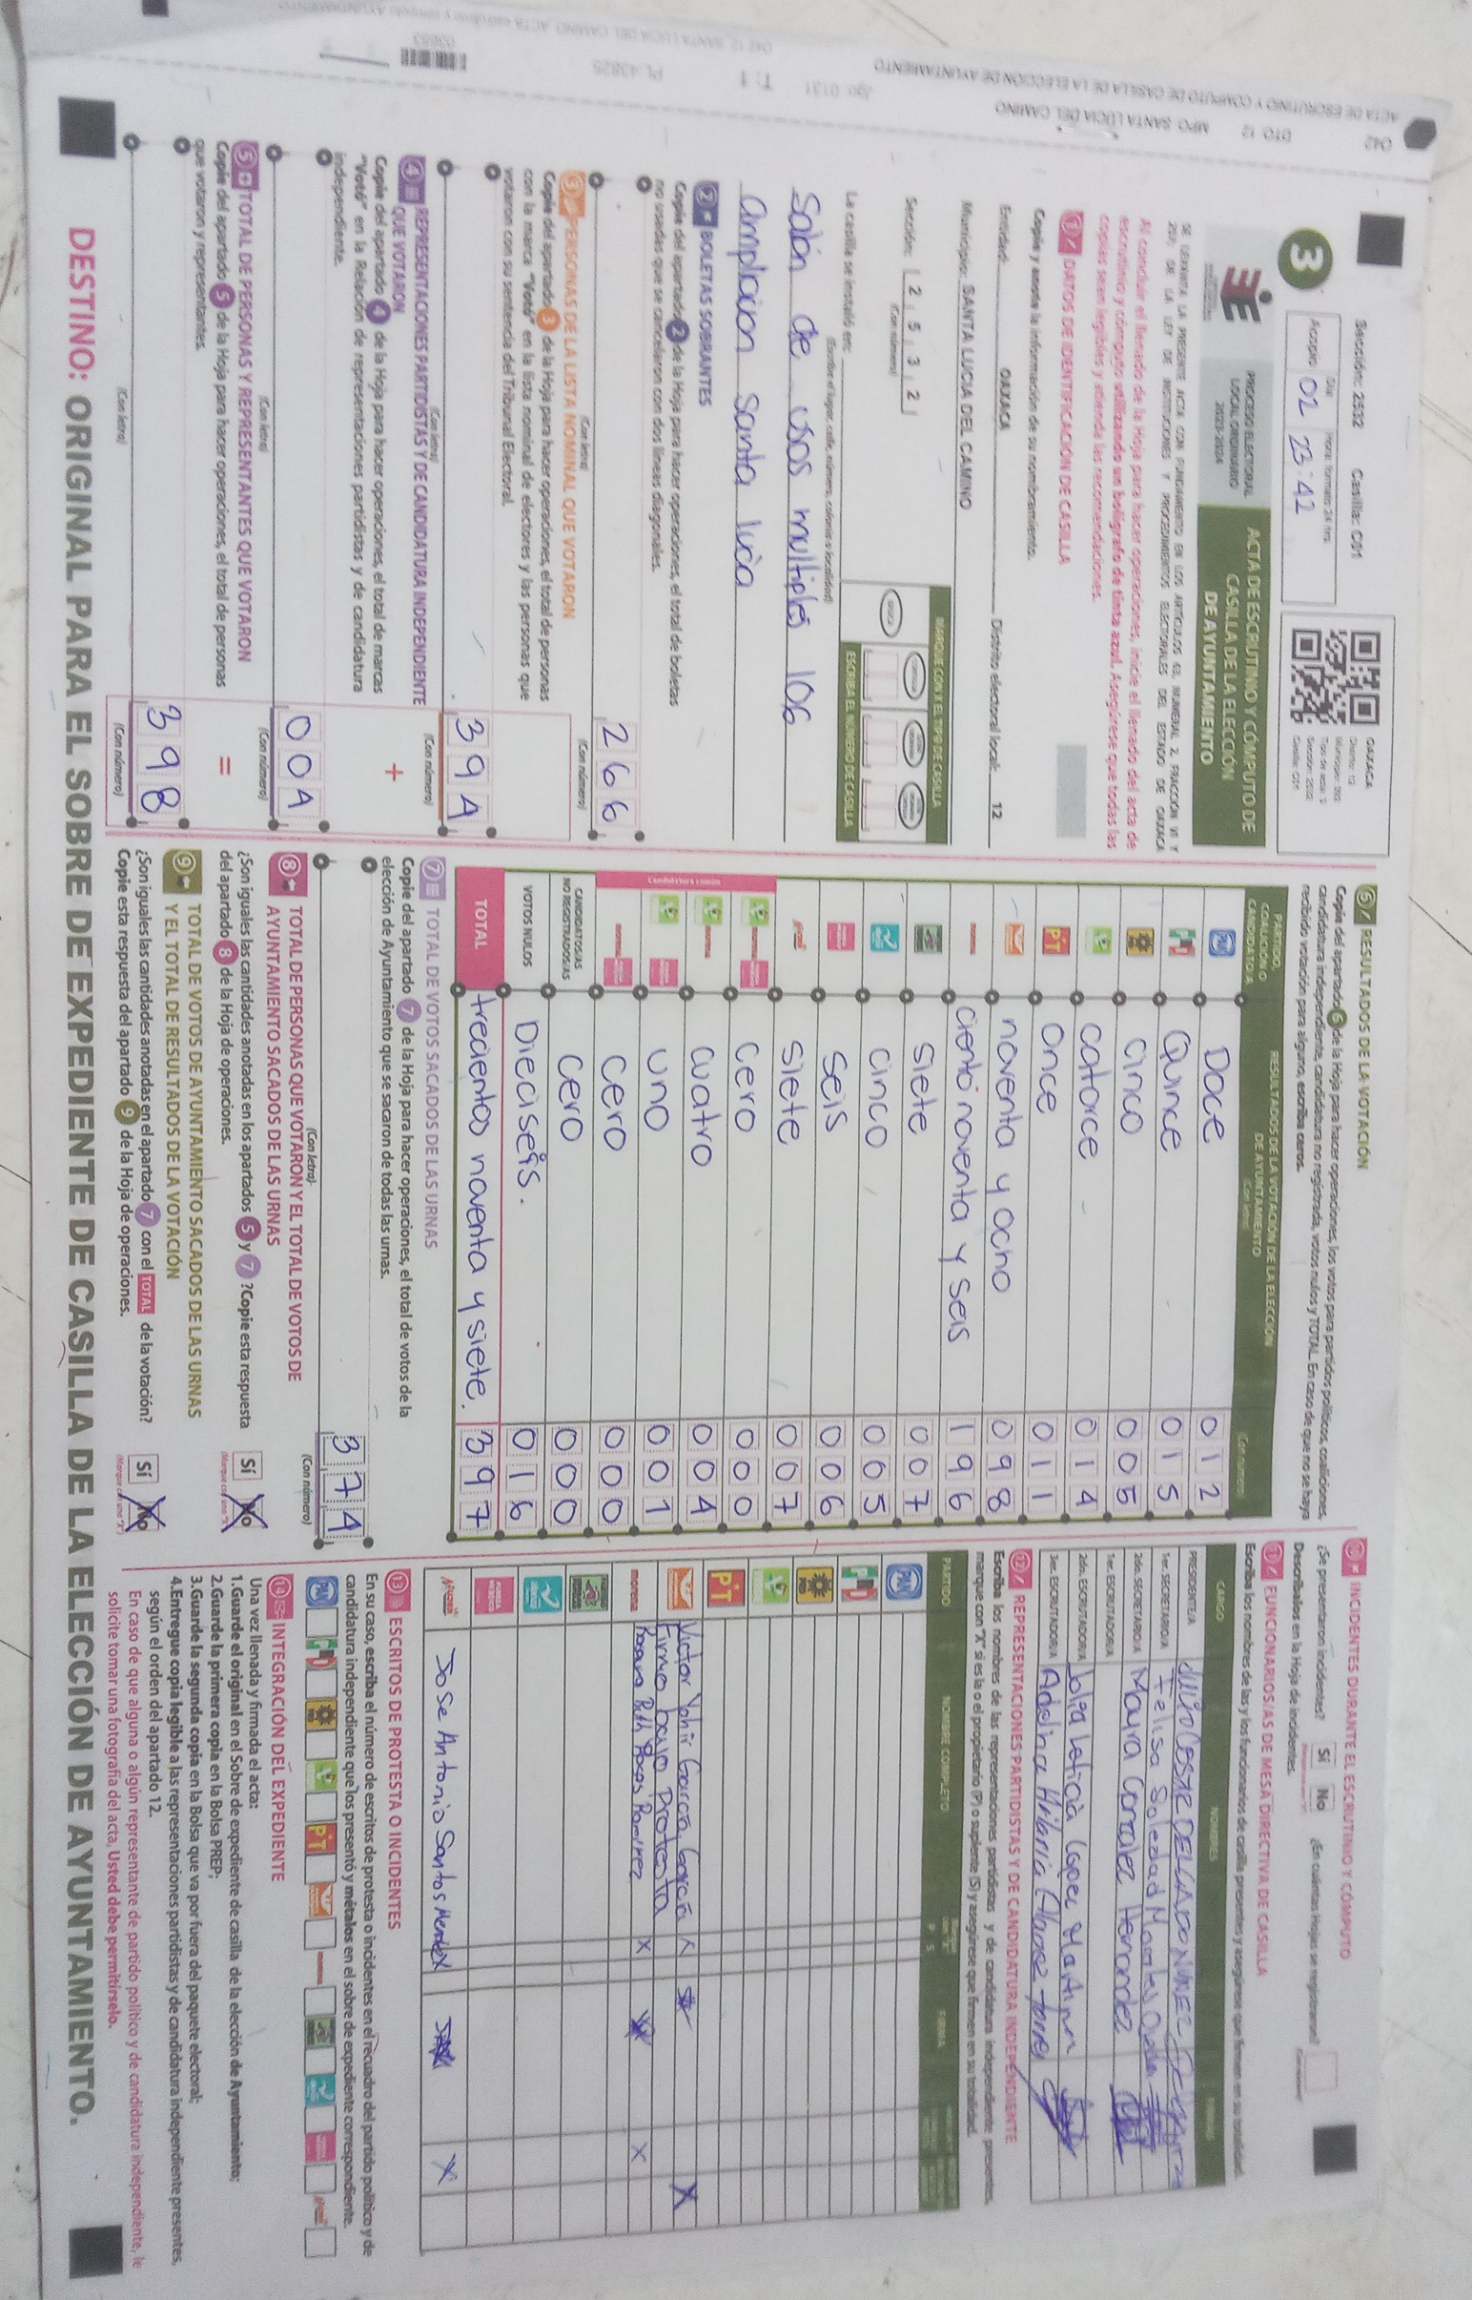 Sección: 2532 Casilla: C01
3
Acopio:
Día:
Hora: formato 24 hrs.
02 23:42
OAXACA
PROCESO ELECTORAL
LOCAL ORDINARIO
2023-2024
ACTA DE ESCRUTINIO Y CÓMPUTO DE
CASILLA DE LA ELECCIÓN
DE AYUNTAMIENTO
Al concluir el llenado de la Hoja para hacer operaciones, inicie el llenado del acta de
escrutinio y cómputo utilizando un bolígrafo de tinta azul. Asegúrese que todas las
copias sean legibles y atienda las recomendaciones.
1 DATOS DE IDENTIFICACIÓN DE CASILLA
Copie y anote la información de su nombramiento.
Entidad: OAXACA Distrito electoral local: 12
Municipio: SANTA LUCIA DEL CAMINO
Sección: 2 5 3 2
(Con número)
MARQUE CON X EL TIPO DE CASILLA
ESCRIBA EL NÚMERO DE CASILLA
La casilla se instaló en:
(Escribe el lugar, calle, número, colonia o localidad)
Salón de usos multiples 106
ampliacion santa lucia
2 BOLETAS SOBRANTES
Copie del apartado 2 de la Hoja para hacer operaciones, el total de boletas
no usadas que se cancelaron con dos líneas diagonales.
266
(Con letra) (Con número)
3 PERSONAS DE LA LISTA NOMINAL QUE VOTARON
Copie del apartado 3 de la Hoja para hacer operaciones, el total de personas
con la marca "Votó" en la lista nominal de electores y las personas que
votaron con su sentencia del Tribunal Electoral.
394
(Con letra) (Con número)
4 REPRESENTACIONES PARTIDISTAS Y DE CANDIDATURA INDEPENDIENTE
QUE VOTARON
+
Copie del apartado 4 de la Hoja para hacer operaciones, el total de marcas
"Votó" en la Relación de representaciones partidistas y de candidatura
independiente.
004
(Con letra) (Con número)
5 TOTAL DE PERSONAS Y REPRESENTANTES QUE VOTARON
=
Copie del apartado 5 de la Hoja para hacer operaciones, el total de personas
que votaron y representantes.
398
(Con letra) (Con número)
6 RESULTADOS DE LA VOTACIÓN
Copie del apartado 6 de la Hoja para hacer operaciones, los votos para partidos políticos, coaliciones,
candidatura independiente, candidatura no registrada, votos nulos y TOTAL. En caso de que no se haya
recibido votación para alguno, escriba ceros.
PARTIDO,
COALICIÓN O
CANDIDATO/A
RESULTADOS DE LA VOTACIÓN DE LA ELECCIÓN
DE AYUNTAMIENTO
(Con letra) (Con número)
PAN Doce 012
PRI Quince 015
PRD cinco 005
catorce 014
PT once 011
noventa y ocho 098
morena ciento noventa y seis 196
siete 007
cinco 005
seis 006
siete 007
Candidatura común
cero 000
cuatro 004
uno 001
cero 000
CANDIDATOS/AS
NO REGISTRADOS/AS
cero 000
VOTOS NULOS Dieciseis. 016
TOTAL trecientos noventa y siete. 397
7 TOTAL DE VOTOS SACADOS DE LAS URNAS
Copie del apartado 7 de la Hoja para hacer operaciones, el total de votos de la
elección de Ayuntamiento que se sacaron de todas las urnas.
374
(Con letra) (Con número)
8 TOTAL DE PERSONAS QUE VOTARON Y EL TOTAL DE VOTOS DE
AYUNTAMIENTO SACADOS DE LAS URNAS
¿Son iguales las cantidades anotadas en los apartados 5 y 7 ?Copie esta respuesta
del apartado 8 de la Hoja de operaciones.
Sí No
9 TOTAL DE VOTOS DE AYUNTAMIENTO SACADOS DE LAS URNAS
Y EL TOTAL DE RESULTADOS DE LA VOTACIÓN
¿Son iguales las cantidades anotadas en el apartado 7 con el TOTAL de la votación?
Copie esta respuesta del apartado 9 de la Hoja de operaciones.
Sí No
10 INCIDENTES DURANTE EL ESCRUTINIO Y CÓMPUTO
¿Se presentaron incidentes? Sí No ¿En cuántas Hojas se registraron?
Descríbalos en la Hoja de incidentes.
11 FUNCIONARIOS/AS DE MESA DIRECTIVA DE CASILLA
Escriba los nombres de las y los funcionarios de casilla presentes y asegúrese que firmen en su totalidad.
CARGO NOMBRES FIRMAS
PRESIDENTE/A JULIO CESAR DELGADO NUÑEZ
1er. SECRETARIO/A Felisa Soledad Morales
2do. SECRETARIO/A Mayra Gonzalez Hernandez
1er. ESCRUTADOR/A
2do. ESCRUTADOR/A Leticia Lopez Martinez
3er. ESCRUTADOR/A
12 REPRESENTACIONES PARTIDISTAS Y DE CANDIDATURA INDEPENDIENTE
Escriba los nombres de las representaciones partidistas y de candidatura independiente presentes,
marque con "X" si es la o el propietario (P) o suplente (S) y asegúrese que firmen en su totalidad.
PARTIDO NOMBRE COMPLETO P S FIRMA
PAN
PRI
PRD
PT
Victor Yahir Garcia Garcia X X
Firmo bajo Protesta
morena Ruth Rogas Ramirez X X
Jose Antonio Santos Mendez X X
13 ESCRITOS DE PROTESTA O INCIDENTES
En su caso, escriba el número de escritos de protesta o incidentes en el recuadro del partido político y de
candidatura independiente que los presentó y métalos en el sobre de expediente correspondiente.
14 INTEGRACIÓN DEL EXPEDIENTE
Una vez llenada y firmada el acta:
1.Guarde el original en el Sobre de expediente de casilla de la elección de Ayuntamiento;
2.Guarde la primera copia en la Bolsa PREP;
3.Guarde la segunda copia en la Bolsa que va por fuera del paquete electoral;
4.Entregue copia legible a las representaciones partidistas y de candidatura independiente presentes,
según el orden del apartado 12.
En caso de que alguna o algún representante de partido político y de candidatura independiente, le
solicite tomar una fotografía del acta, Usted debe permitírselo.
DESTINO: ORIGINAL PARA EL SOBRE DE EXPEDIENTE DE CASILLA DE LA ELECCIÓN DE AYUNTAMIENTO.
ACTA DE ESCRUTINIO Y COMPUTO DE CASILLA DE LA ELECCION DE AYUNTAMIENTO
042 DTO. 12 MPO. SANTA LUCIA DEL CAMINO